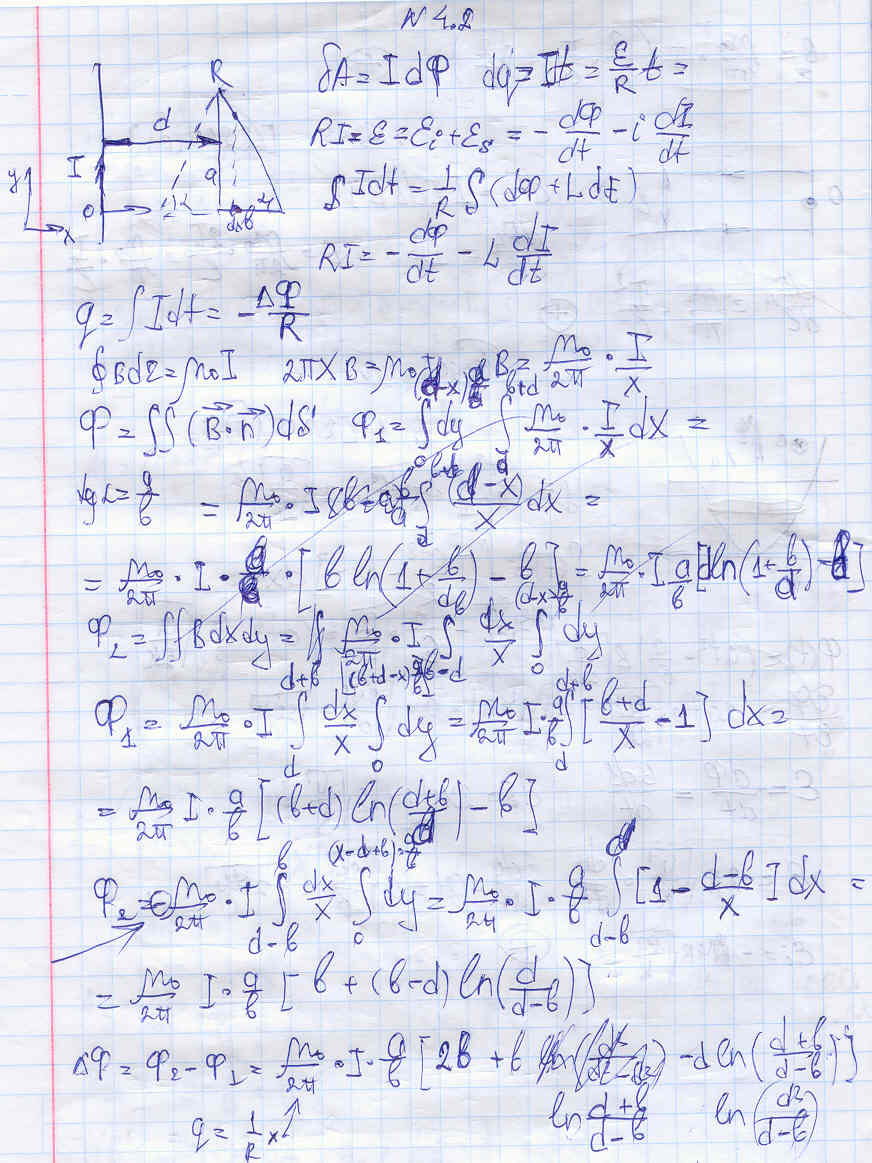 N 4.2
R
d
I
a
y
0
x
δA = I dΦ dq = It = ε/R t =
RI = ε = εi + εs = - dΦ/dt - i dI/dt
∫ I dt = 1/R ∫ (dΦ + L dI)
RI = - dΦ/dt - L dI/dt
q = ∫ I dt = - ΔΦ/R
∮ B dl = μ0 I 2πXB = μ0 I B = μ0/2π · I/x
Φ = ∫∫ (B · n) dS Φ1 = ∫ dy ∫ μ0/2π · I/x dx =
tg α = a/b = μ0/2π · I ∫ (d-x)/x dx =
= μ0/2π · I · a/b · [b ln(1 + b/d) - b] = μ0/2π · I a/b [d ln(1 + b/d) - b]
Φ2 = ∫∫ B dx dy = ∫ μ0/2π · I ∫ dx/x ∫ dy
Φ1 = μ0/2π · I ∫_d^{d+b} dx/x ∫_0^{(b+d-x) a/b} dy = μ0/2π I · a/b ∫_d^{d+b} [(b+d)/x - 1] dx =
= μ0/2π I · a/b [(b+d) ln((d+b)/d) - b]
Φ2 = - μ0/2π · I ∫_{d-b}^b dx/x ∫_0^{(x-d+b) a/b} dy = μ0/2π · I · a/b ∫_{d-b}^d [1 - (d-b)/x] dx =
= μ0/2π I · a/b [b + (b-d) ln(d/(d-b))]
ΔΦ = Φ2 - Φ1 = μ0/2π · I · a/b [2b + b - d ln((d+b)/(d-b))]
ln (d+b)/(d-b)
q = 1/R x